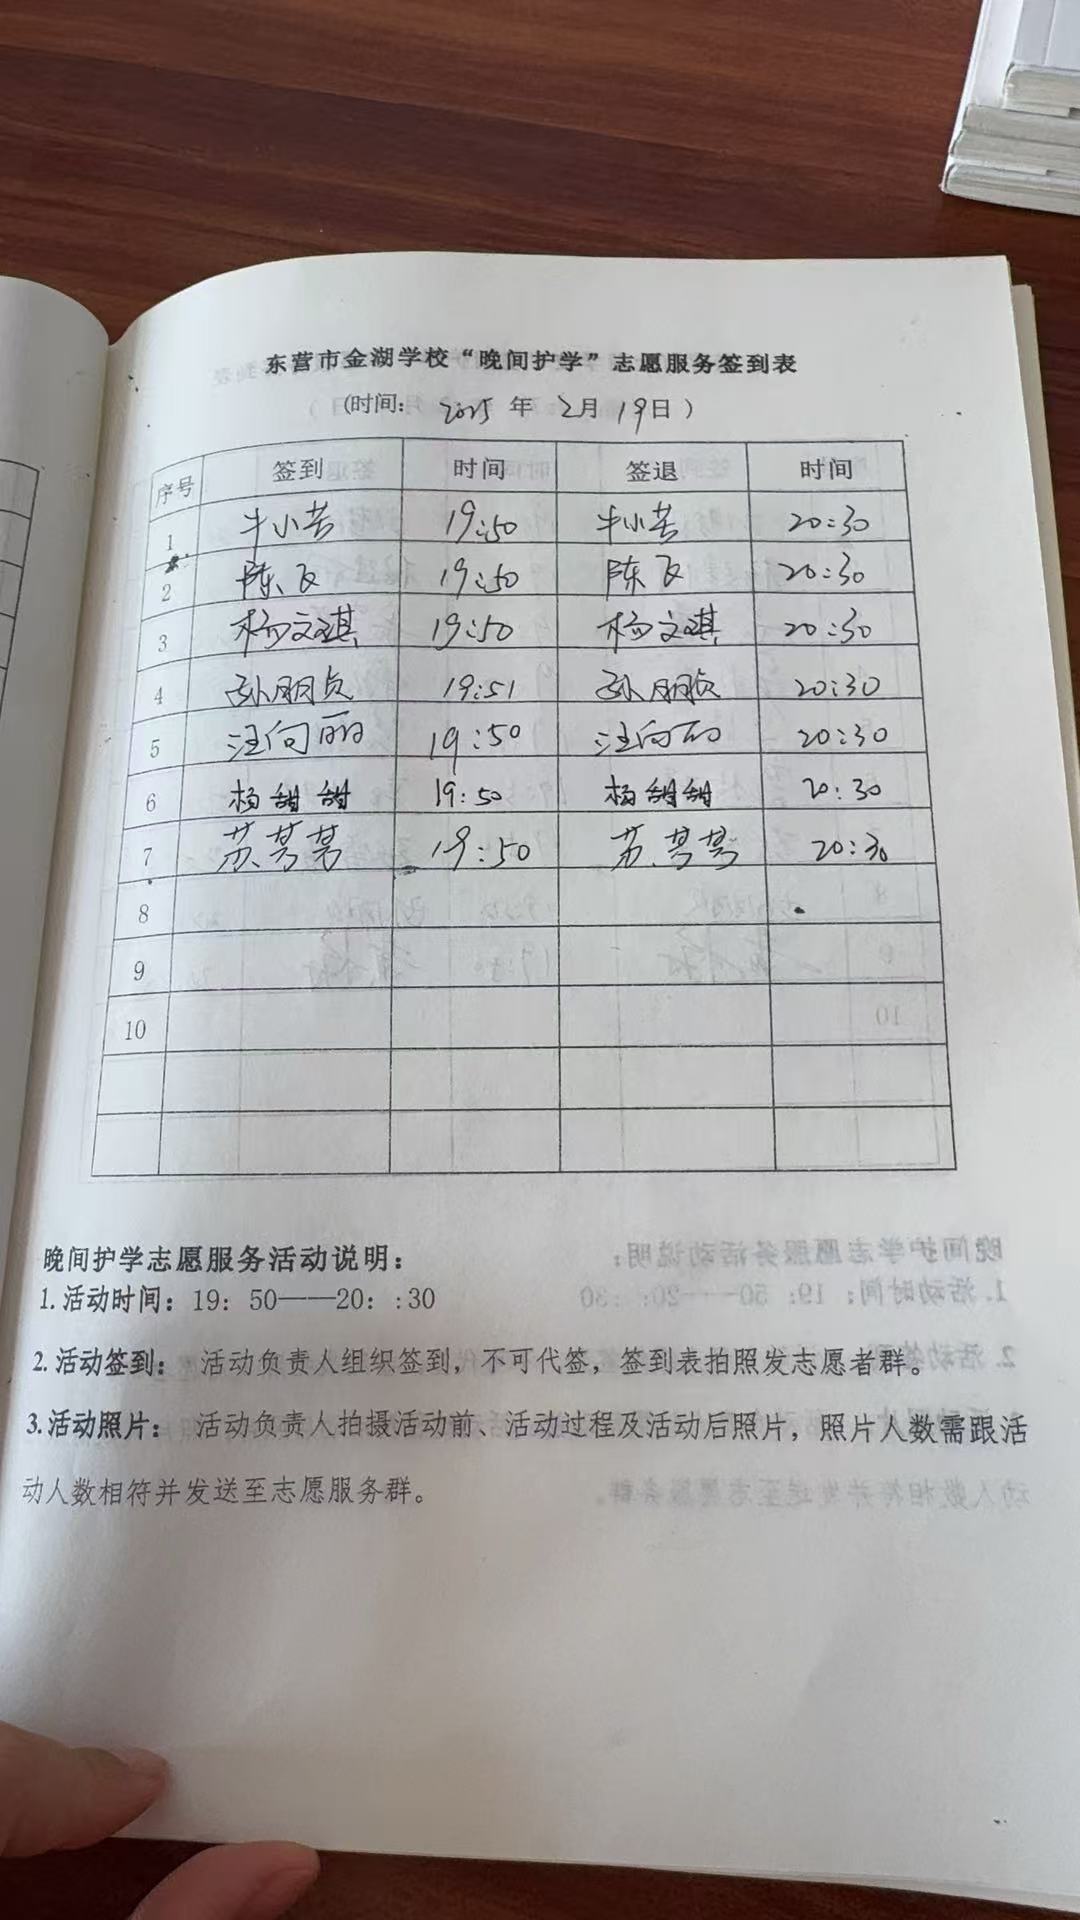 东营市金湖学校“晚间护学”志愿服务签到表
(时间: 2025 年 2月 19日 )
序号 签到 时间 签退 时间
1 牛小芳 19:50 牛小芳 20:30
2 陈飞 19:50 陈飞 20:30
3 杨文琪 19:50 杨文琪 20:30
4 孙朋贞 19:51 孙朋贞 20:30
5 汪向丽 19:50 汪向丽 20:30
6 杨甜甜 19:50 杨甜甜 20:30
7 苏 19:50 苏 20:30
8
9
10
晚间护学志愿服务活动说明：
1.活动时间：19：50——20：:30
2.活动签到： 活动负责人组织签到，不可代签，签到表拍照发志愿者群。
3.活动照片： 活动负责人拍摄活动前、活动过程及活动后照片，照片人数需跟活
动人数相符并发送至志愿服务群。